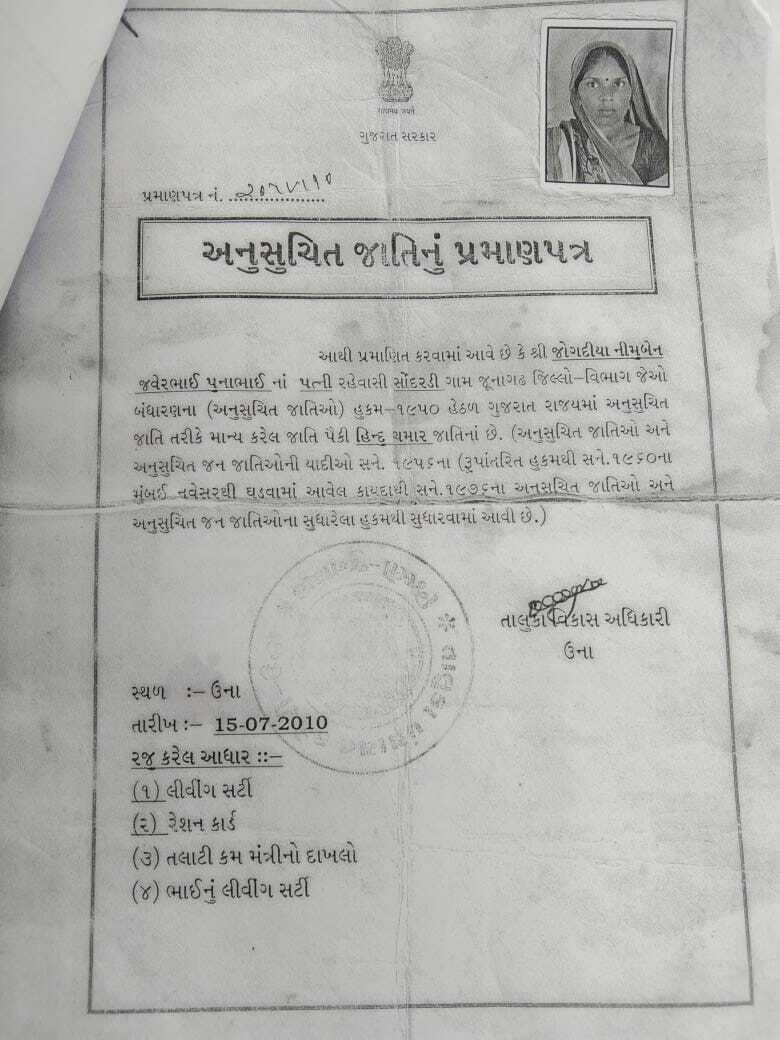 ગુજરાત સરકાર
પ્રમાણપત્ર નં.
અનુસુચિત જાતિનું પ્રમાણપત્ર
આથી પ્રમાણિત કરવામાં આવે છે કે શ્રી જોગદીયા નીમુબેન
જવેરભાઈ પુનાભાઈ નાં પત્ની રહેવાસી સોંદરડી ગામ જૂનાગઢ જિલ્લો-વિભાગ જેઓ
બંધારણના (અનુસુચિત જાતિઓ) હુકમ-૧૯૫૦ હેઠળ ગુજરાત રાજયમાં અનુસુચિત
જાતિ તરીકે માન્ય કરેલ જાતિ પૈકી હિન્દુ ચમાર જાતિનાં છે. (અનુસુચિત જાતિઓ અને
અનુસુચિત જન જાતિઓની યાદીઓ સને. ૧૯૫૬ના (રૂપાંતરિત હુકમથી સને.૧૯૬૦ના
મુંબઈ નવેસરથી ઘડવામાં આવેલ કાયદાથી સને.૧૯૭૬ના અનુસુચિત જાતિઓ અને
અનુસુચિત જન જાતિઓના સુધારેલા હુકમથી સુધારવામાં આવી છે.)
તાલુકા વિકાસ અધિકારી
ઉના
સ્થળ :- ઉના
તારીખ :- 15-07-2010
રજુ કરેલ આધાર ::-
(૧) લીવીંગ સર્ટી
(૨) રેશન કાર્ડ
(૩) તલાટી કમ મંત્રીનો દાખલો
(૪) ભાઈનું લીવીંગ સર્ટી